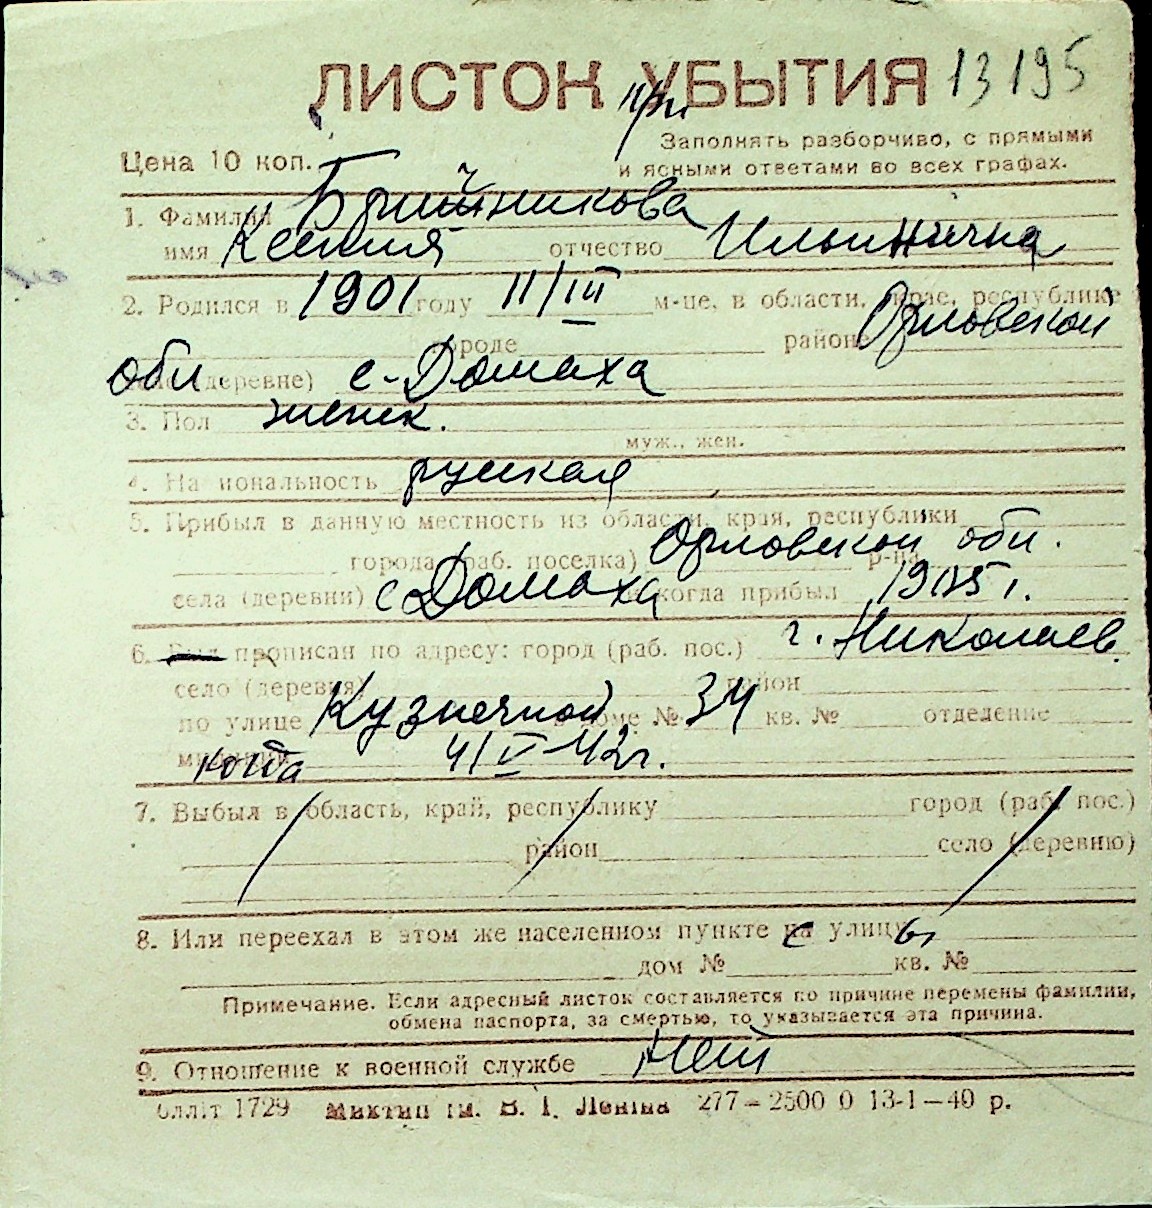 ЛИСТОК УБЫТИЯ 13195
Цена 10 коп.
Заполнять разборчиво, с прямыми
и ясными ответами во всех графах.
1. Фамилия
имя Ксения отчество Ильинична
2. Родился в 1901 году 11/III м-це, в области, крае, республике
городе районе Орловской
обл (деревне) с-Домаха
3. Пол женск.
муж., жен.
4. Национальность руская
5. Прибыл в данную местность из области, края, республики
города (раб. поселка) Орловской обл. р-на
села (деревни) с Домаха когда прибыл
6. Был прописан по адресу: город (раб. пос.) г. Николаев
село (деревня) район
по улице Кузнечной доме № 34 кв. № отделение
милиции когда 4/V-42г.
7. Выбыл в область, край, республику город (раб. пос.)
район село (деревню)
8. Или переехал в этом же населенном пункте на улицу
дом № кв. №
Примечание. Если адресный листок составляется по причине перемены фамилии,
обмена паспорта, за смертью, то указывается эта причина.
9. Отношение к военной службе нет
1729 Миктип ім. В. І. Леніна 277–2500 0 13-1–40 р.